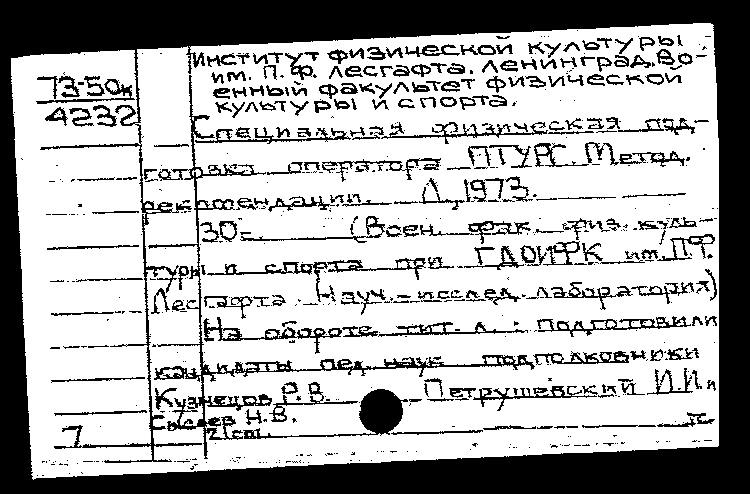 Институт физической культуры
73-50к
им. П.Ф. Лесгафта, Ленинград. Во-
4232
енный факультет физической
культуры и спорта.
Специальная физическая под-
готовка оператора ПТУРС. Метод.
рекомендации. Л., 1973.
30-. (Воен. фак. физ. куль-
туры и спорта при ГДОИФК им. П.Ф.
Лесгафта. Науч.-исслед. лаборатория)
На обороте тит. л.: подготовили
кандидаты пед. наук подполковники
Кузнецов Р.В. Петрушевский И.И. и
Сысоев Н.В.
7